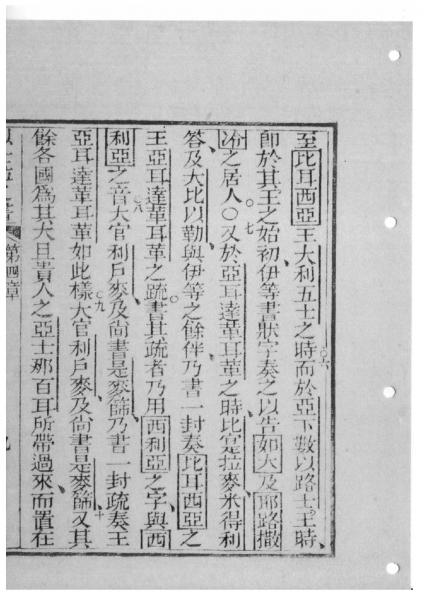 至比耳西亞王大利五士之時而於亞下數以路士王時
即於其王之始初伊等書狀字奏之以告如大及耶路撒
之居人〇又於亞耳達革耳革之時比是拉麥米得利
答及大比以勒與伊等之餘伴乃書一封奏比耳西亞之
王亞耳達革耳革之䟽書其䟽者乃用西利亞之字與西
利亞之音大官利戶麥及尚書是麥篩乃書一封䟽奏王
亞耳達革耳革如此樣大官利戶麥及尚書是麥篩又其
餘各國為其大且貴人之亞士那百耳所帶過來而置在
第四章
九